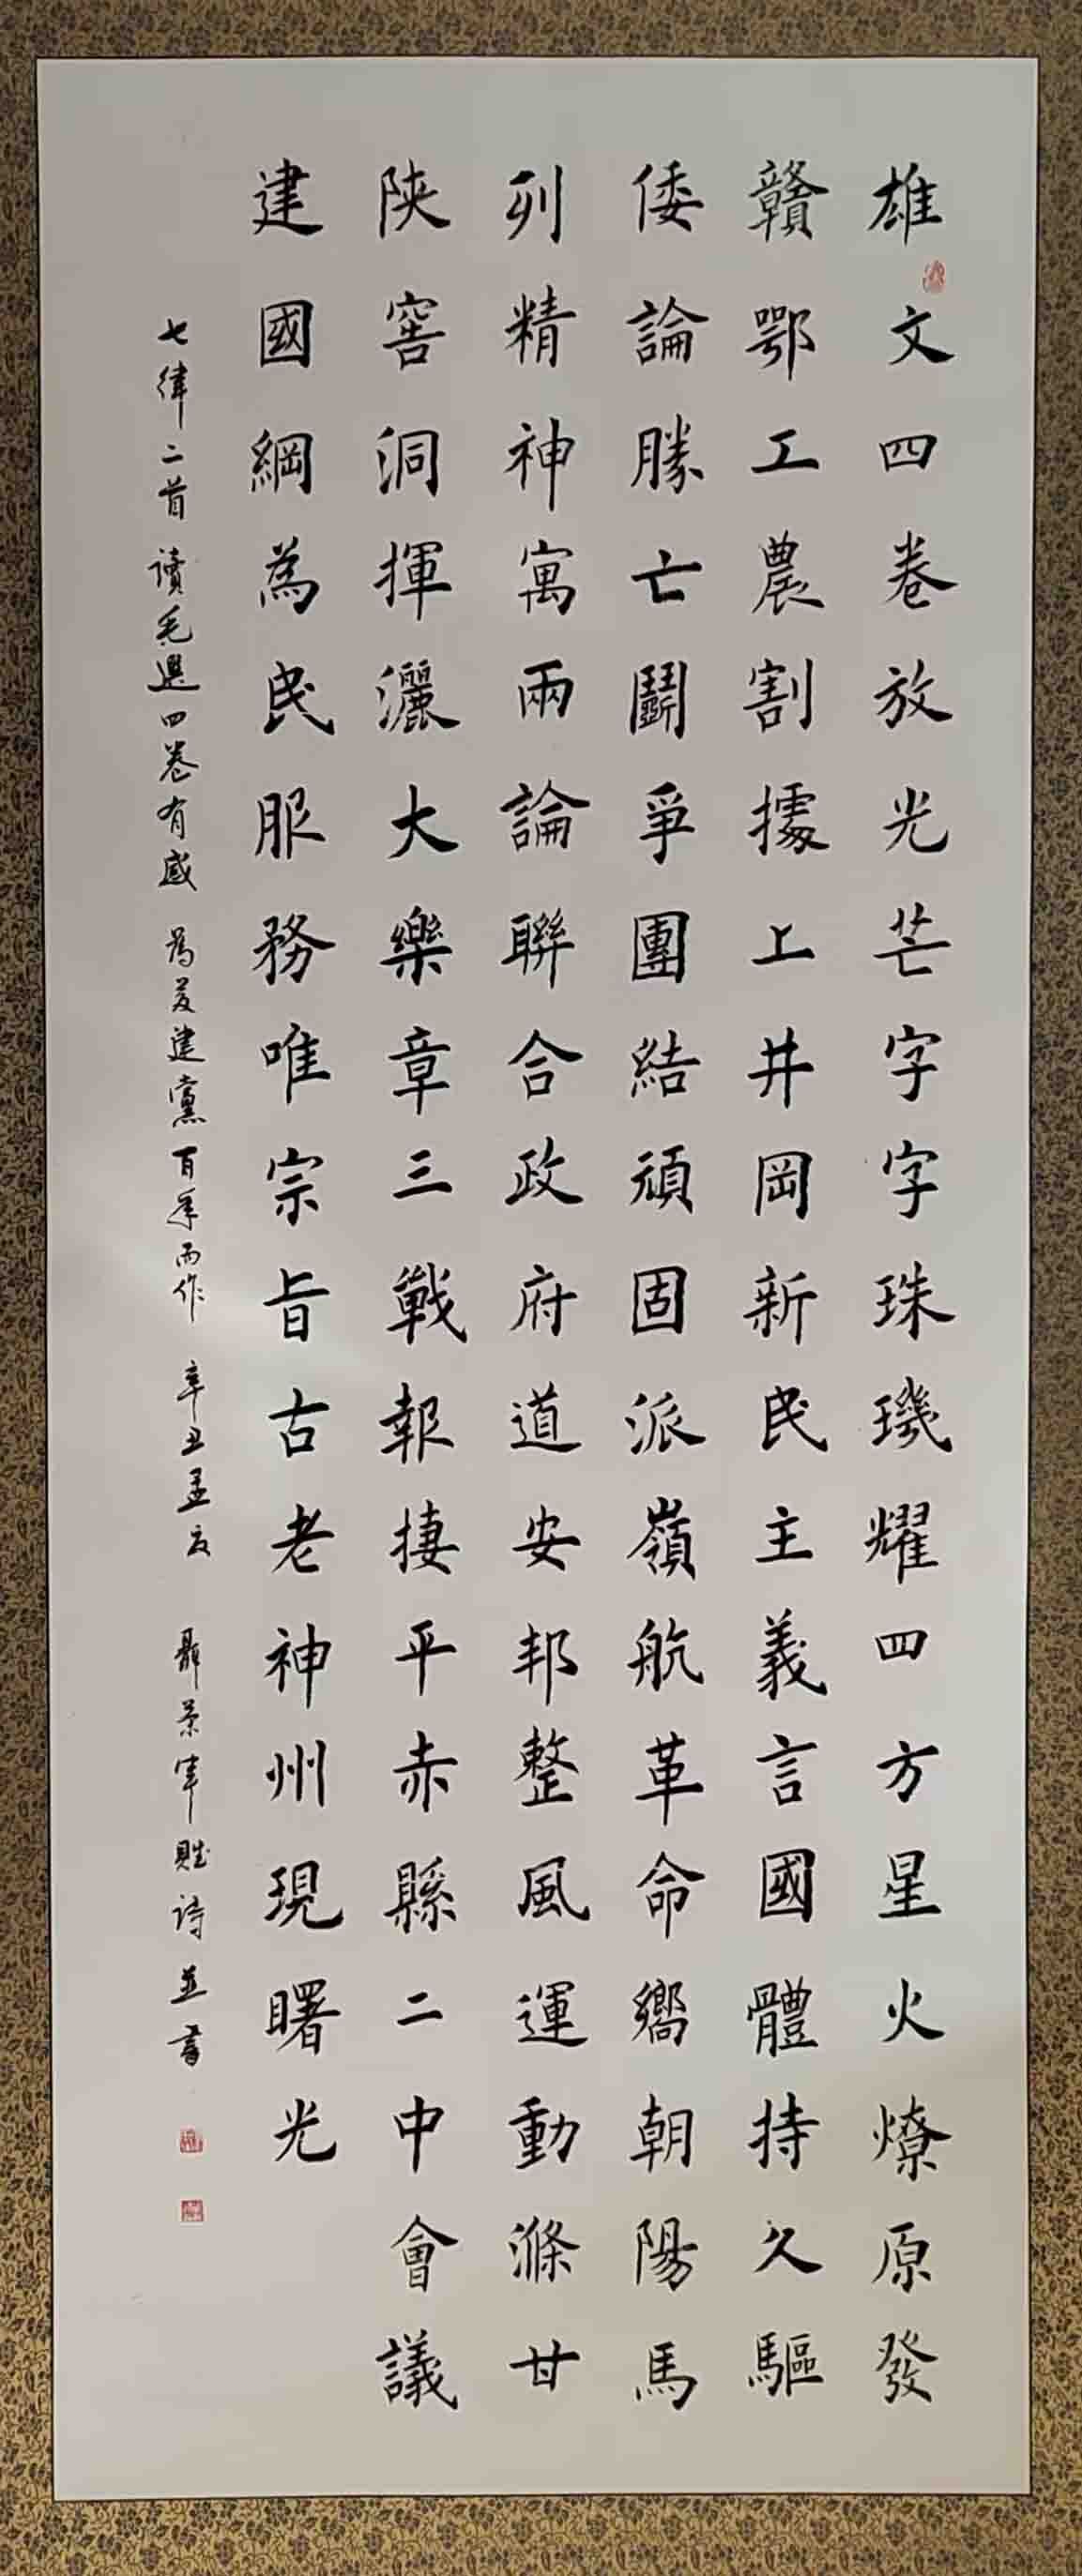 雄文四卷放光芒字字珠璣耀四方星火燎原發
贛鄂工農割據上井岡新民主義言國體持久驅
倭論勝亡鬭爭團結頑固派嶺航革命嚮朝陽馬
列精神寓兩論聯合政府道安邦整風運動滌甘
陝窖洞揮灑大樂章三戰報捷平赤縣二中會議
建國綱為民服務唯宗旨古老神州現曙光
七律二首 讀毛選四卷有感 為慶建黨百年而作 辛丑孟夏 聶榮軍 詩並書